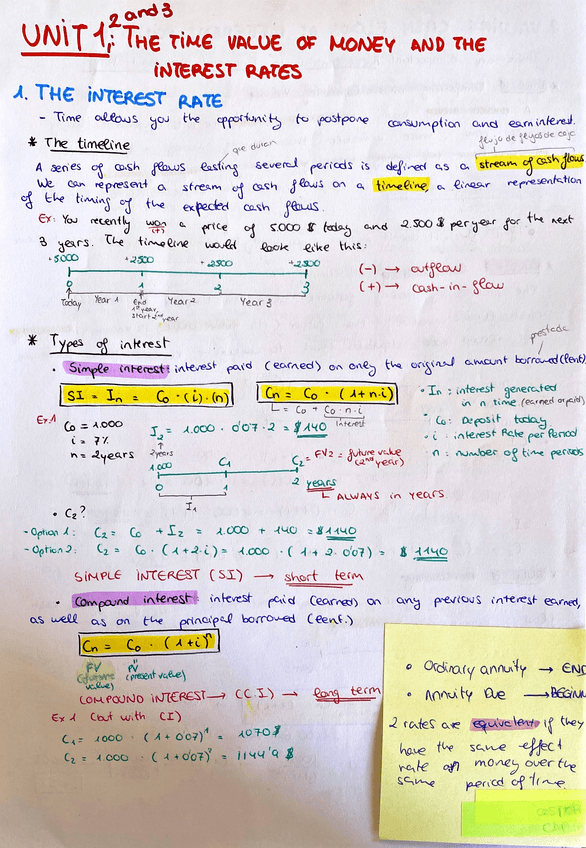 2 and 3
UNIT 1: THE TIME VALUE OF MONEY AND THE
INTEREST RATES
1. THE INTEREST RATE
- Time allows you the opportunity to postpone consumption and earn interest.
* The timeline
que duran
flujo de flujos de caja
A series of cash flows lasting several periods is defined as a stream of cash flows
We can represent a stream of cash flows on a timeline, a linear representation
of the timing of the expected cash flows.
Ex: You recently won a price of 5000 $ today and 2.500 $ per year for the next
(+)
3 years. The timeline would look like this:
+5000 +2500 +2500 +2500
0 1 2 3
Today Year 1 End Year 2 Year 3
1st year
start 2nd year
(-) → outflow
(+) → cash-in-flow
* Types of interest
prestado
• Simple interest: interest paid (earned) on only the original amount borrowed (lent)
SI = In = Co · (i) · (n)
Cn = Co · (1+n·i)
= Co + Co·n·i
interest
• In: interest generated
in n time (earned or paid)
• Co: Deposit today
• i: interest Rate per Period
• n: number of time periods
Ex1 Co = 1.000
i = 7%
n = 2 years
I2 = 1.000 · 0'07 · 2 = $140
2 years
1.000 C1 C2 = FV2 = future value
(2nd year)
0 1 2 years
I1
ALWAYS in YEARS
• C2?
- Option 1: C2 = Co + I2 = 1.000 + 140 = $1140
- Option 2: C2 = Co · (1+2·i) = 1.000 · (1+2·0'07) = $ 1140
SIMPLE INTEREST (SI) → short term
• Compound interest interest paid (earned) on any previous interest earned,
as well as on the principal borrowed (lent.)
Cn = Co · (1+i)n
FV PV
(future value) (present value)
COMPOUND INTEREST → (C.I) → long term
Ex 1 (but with CI)
C1 = 1000 · (1+0'07)1 = 1070$
C2 = 1.000 · (1+0'07)2 = 1144'9 $
• Ordinary annuity → END
• Annuity Due → BEGIN
2 rates are equivalent if they
have the same effect
rate on money over the
same period of time.